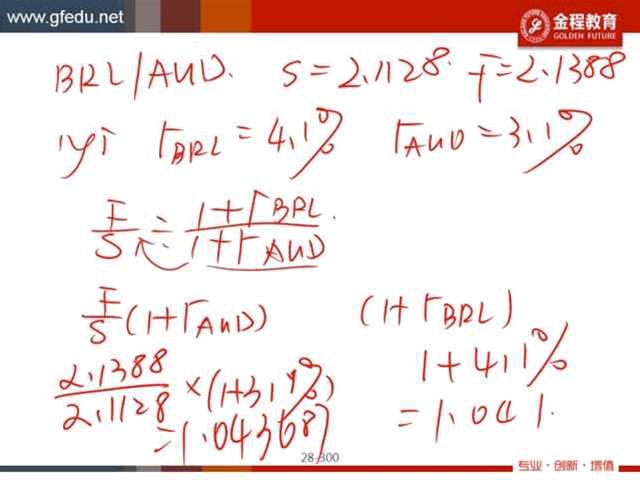 www.gfedu.net
金程教育
GOLDEN FUTURE
BRL/AUD. S=2.1128 F=2.1388
1yr r_BRL=4.1% r_AUD=3.1%
F/S = (1+r_BRL)/(1+r_AUD)
F/S (1+r_AUD) (1+r_BRL)
2.1388/2.1128 ×(1+3.1%) 1+4.1%
=1.04368) =1.041.
28-300
专业·创新·增值